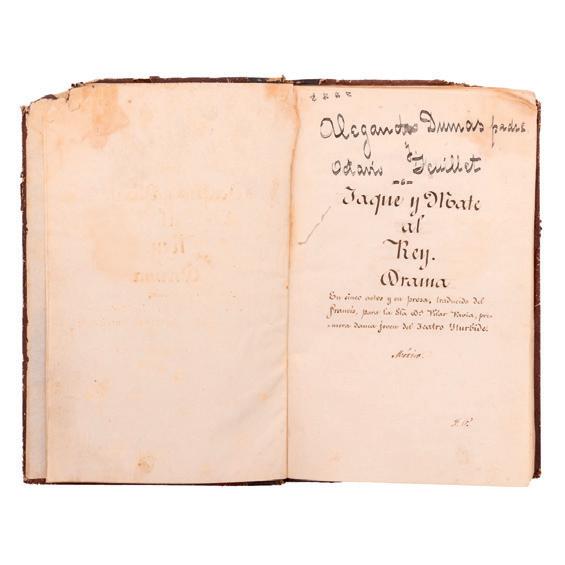 Alegandro Dumas padre
y
Octavio Feuillet
Jaque y Mate
al
Rey.
Drama
En cinco actos y en prosa, traducido del
francés, para la Sta. Da. Pilar Pavia, pri-
mera dama joven del Teatro Yturbide.
México.